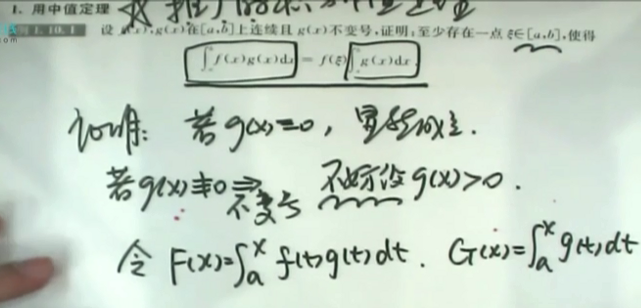 1. 用中值定理 推广的积分中值定理
例 1.10.1 设 f(x), g(x)在[a,b]上连续且 g(x)不变号,证明:至少存在一点 ξ∈[a,b],使得
∫ f(x)g(x)dx = f(ξ)∫ g(x)dx
证明: 若 g(x)=0, 显然成立.
若 g(x)≢0 ⇒ 不变号 不妨设 g(x)>0.
令 F(x)=∫ₐˣ f(t)g(t)dt. G(x)=∫ₐˣ g(t)dt